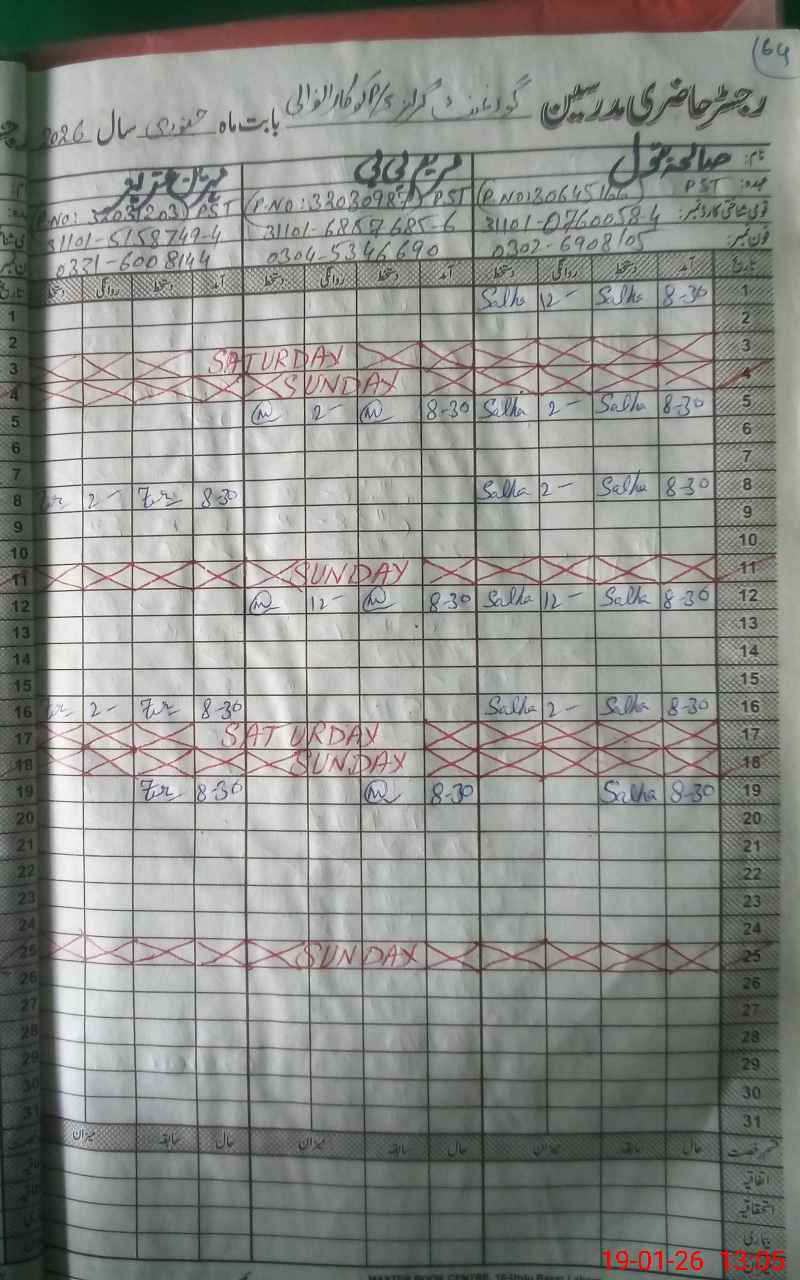 64
رجسٹر حاضری مدرسین گورنمنٹ گرلز P/S بابت ماہ جنوری سال 2026
نام: صالحہ بتول مریم بی بی
عہدہ: PST (P.NO:30645166) PST (P.NO:32030987) PST (P.NO: 32031203)
قومی شناختی کارڈ نمبر: 31101-0760058-4 31101-6857685-6 31101-5158749-4
فون نمبر: 0302-6908105 0304-5346690 0331-6008144
تاریخ آمد دستخط روانگی دستخط آمد دستخط روانگی دستخط آمد دستخط روانگی دستخط تاریخ
1 8-30 Salha 12- Salha 1
2 2
3 SATURDAY 3
4 SUNDAY 4
5 8-30 Salha 2- Salha 8-30 m 2- m 5
6 6
7 7
8 8-30 Salha 2- Salha 8-30 2- 8
9 9
10 10
11 SUNDAY 11
12 8-30 Salha 12- Salha 8-30 m 12- m 12
13 13
14 14
15 15
16 8-30 Salha 2- Salha 8-30 2- 16
17 SATURDAY 17
18 SUNDAY 18
19 8-30 Salha 8-30 m 8-30 19
20 20
21 21
22 22
23 23
24 24
25 SUNDAY 25
26 26
27 27
28 28
29 29
30 30
31 31
قسم رخصت حال سابقہ میزان حال سابقہ میزان حال سابقہ میزان
اتفاقیہ
استحقاقیہ
بیماری
19-01-26 13:05